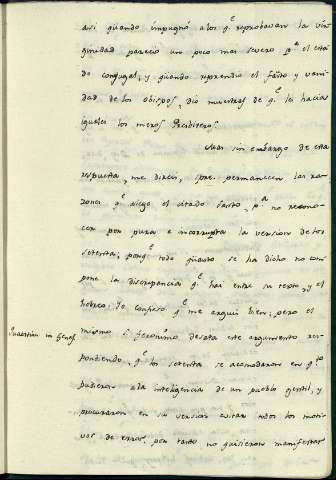 asi quando impugnó a los q.e reprobavan la vir
ginidad pareció un poco mas severo p.a el esta
do conyugal, y quando reprendió el fausto y vani
dad de los obispos, dió muestras de q.e les hacia
iguales los meros Presbiteros.
Mas sin embargo de esta
respuesta, me direis, q.e permanecen las ra
zones q.e alegó el citado Santo, p.a no recono
cer por pura e incorrupta la version de los
setenta; porq.e todo quanto se ha dicho no com
pone la discrepancia q.e hai entre su texto, y el
hebreo: Yo confieso q.e me arguis bien; pero el
in Genes.
mismo S. Geronimo desata este argumento res
pondiendo, q.e los setenta se acomodaron en q.to
pudieron a la inteligencia de un pueblo gentil, y
procuraron en su version evitar todos los moti
vos de error, por tanto no quisieron manifestar